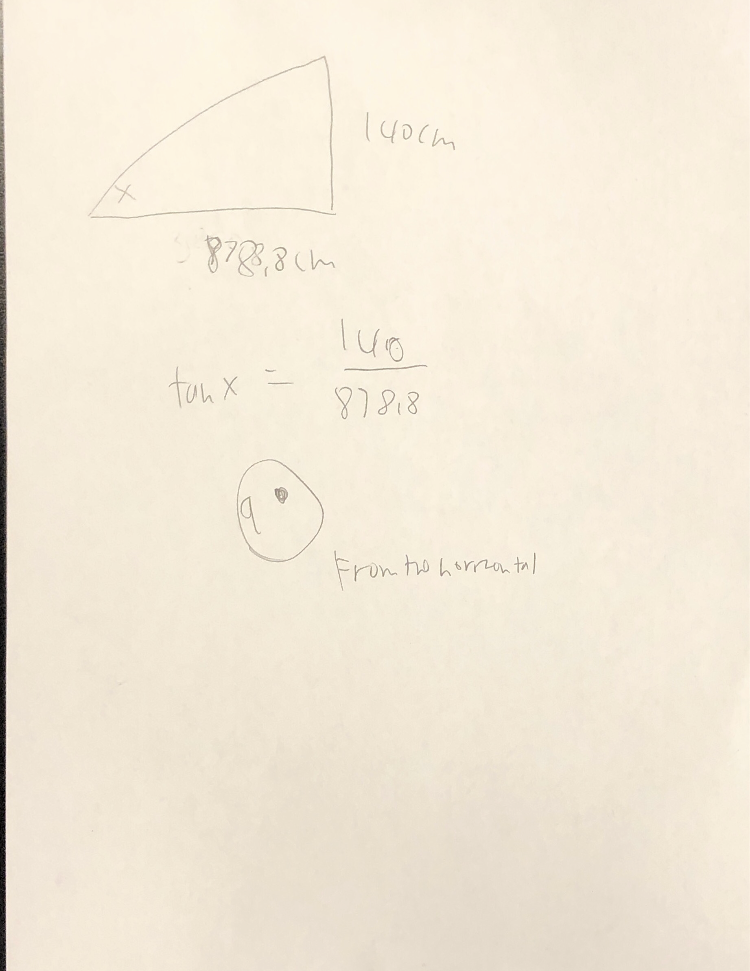 x
140cm
878.8cm
tan x = 140
878.8
9°
From the horizontal